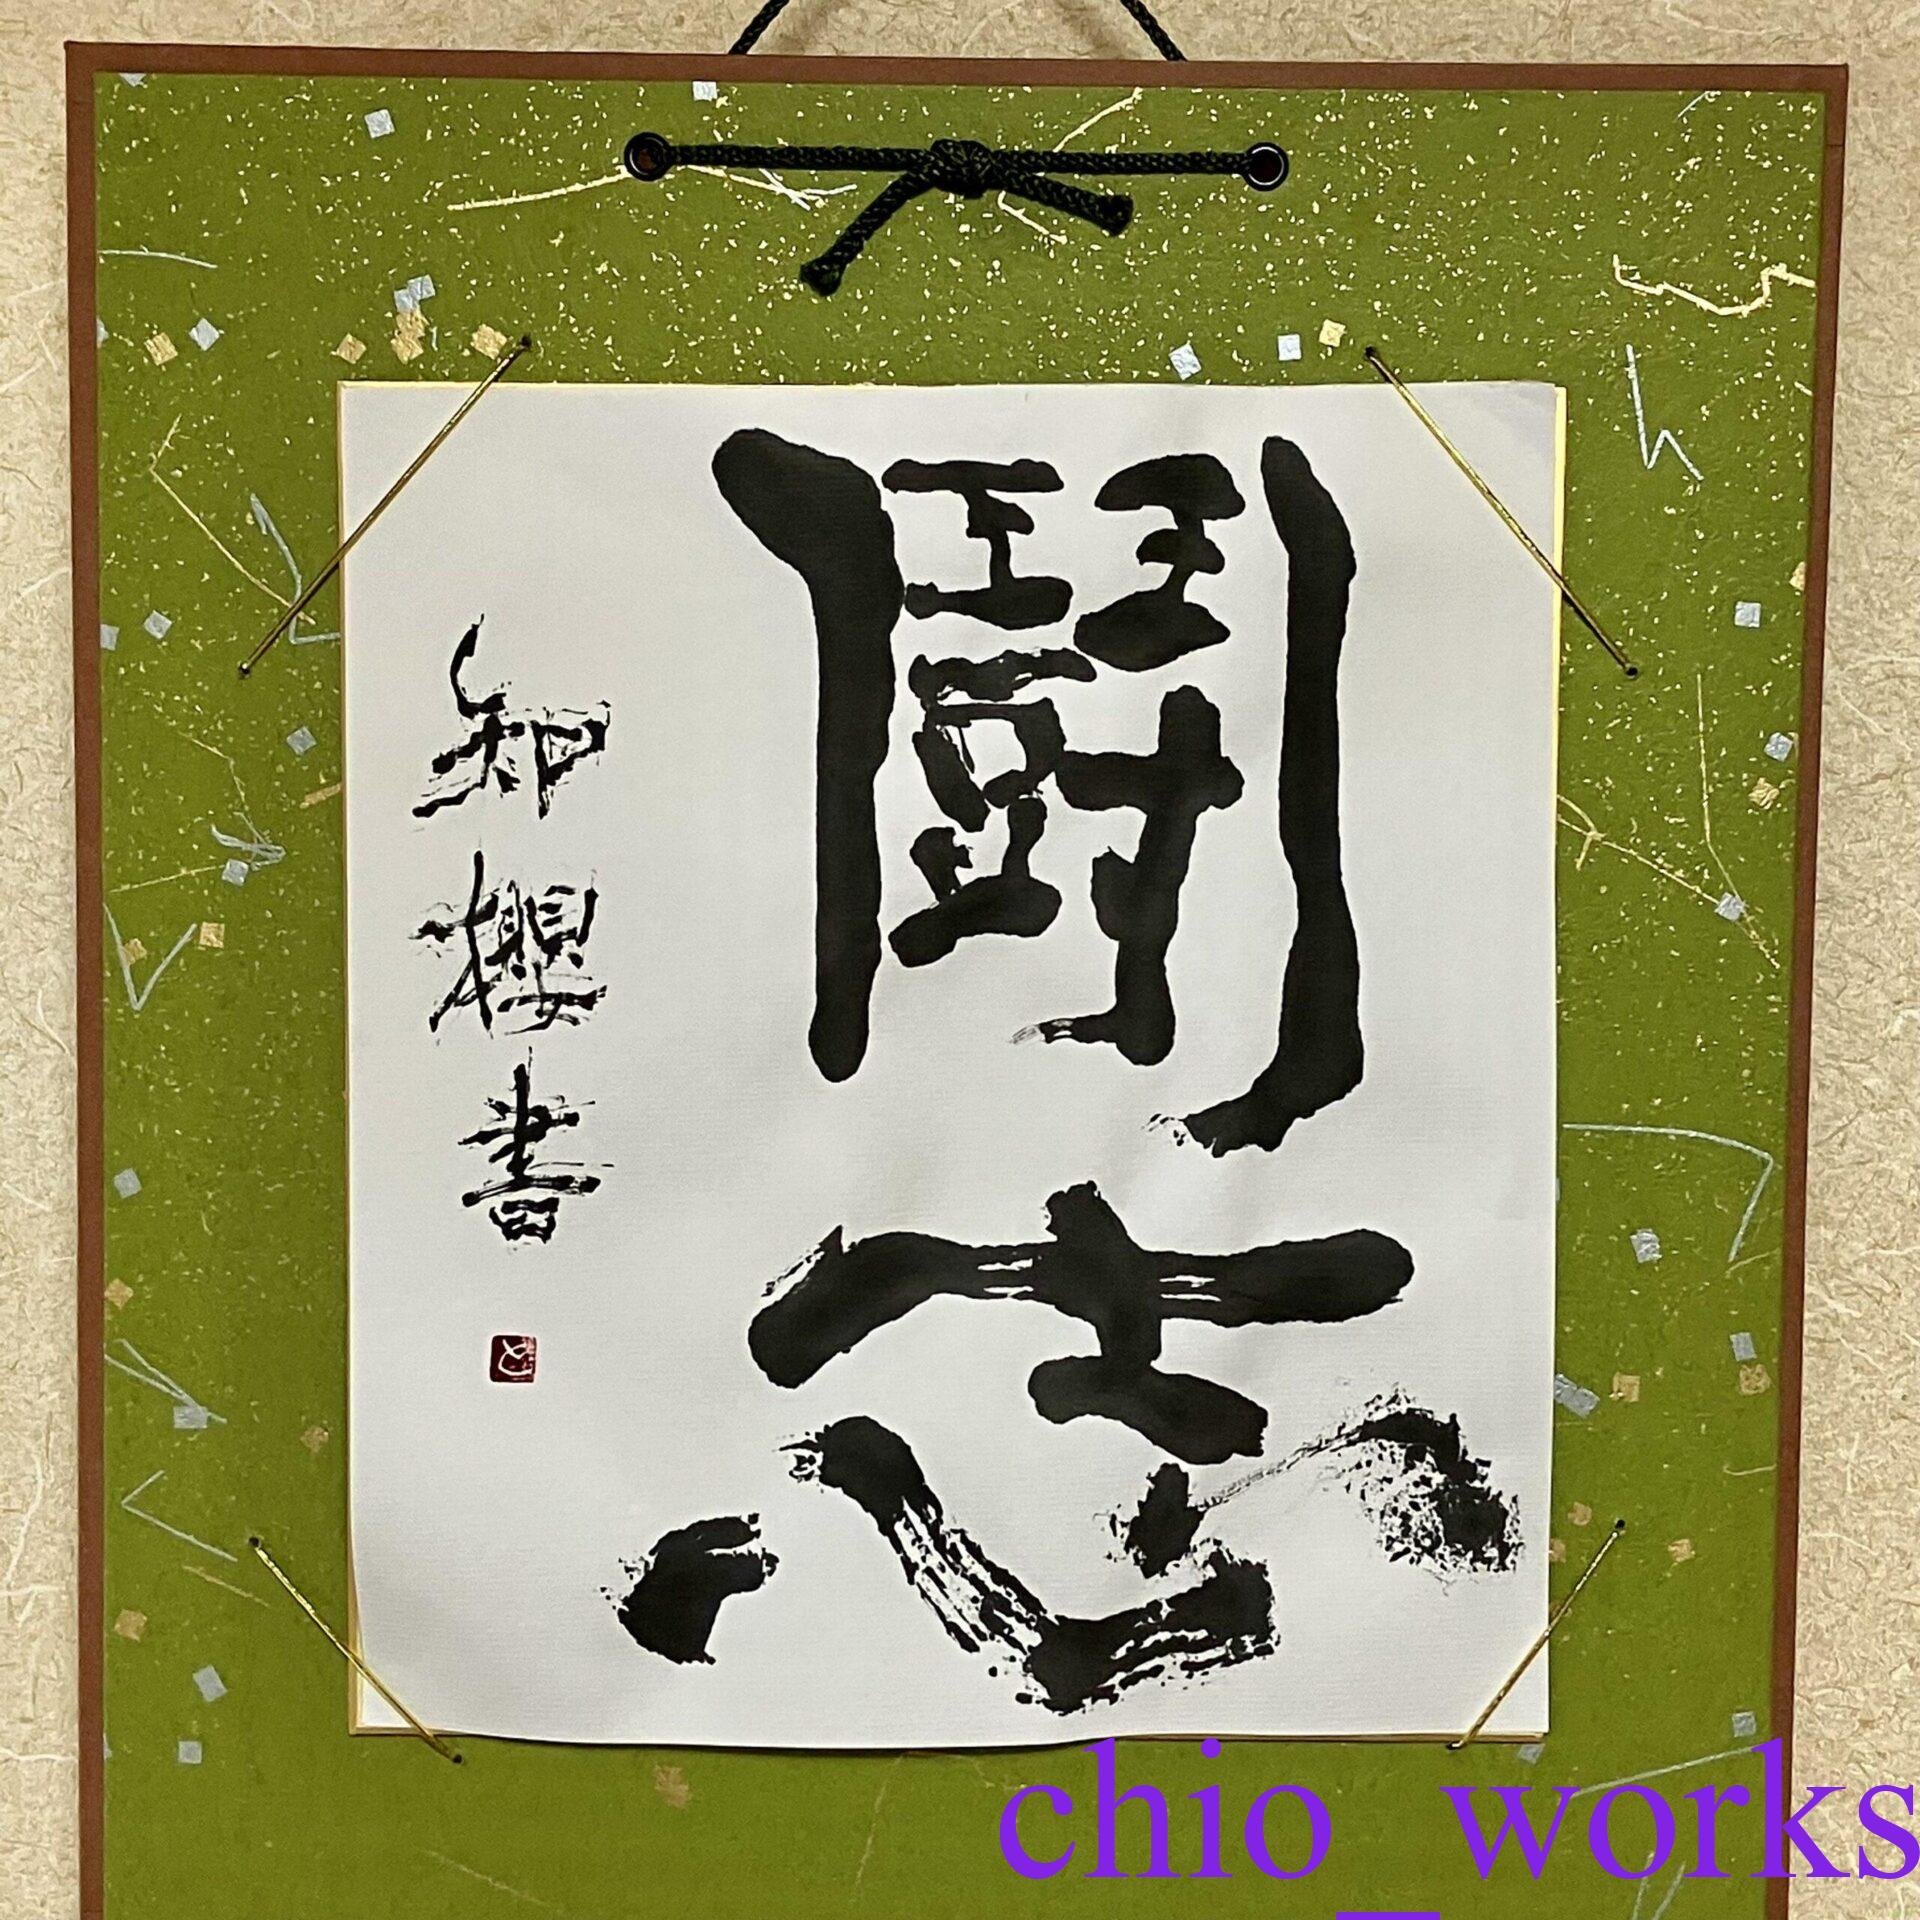 鬪志
知櫻書
chio_works